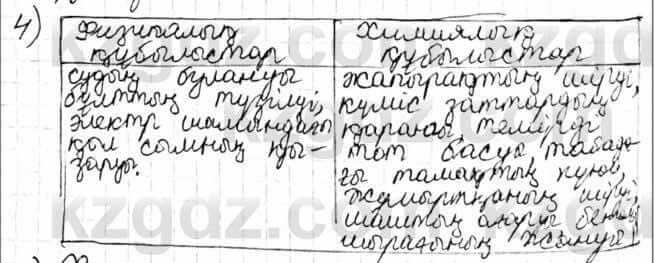 4)
Физикалық құбылыстар
Химиялық құбылыстар
судың булануы
бұлттың түзілуі,
электр шамындағы
қыл сымның қы-
заруы.
жапырақтың шіруі,
күміс заттардың
қараюы, темірді
тот басуы, табада-
ғы тамақтың күюі,
жұмыртқаның шіруі,
шаштың ағаруы,
шырағының жануы.
kzgdz.com kzgdz.com